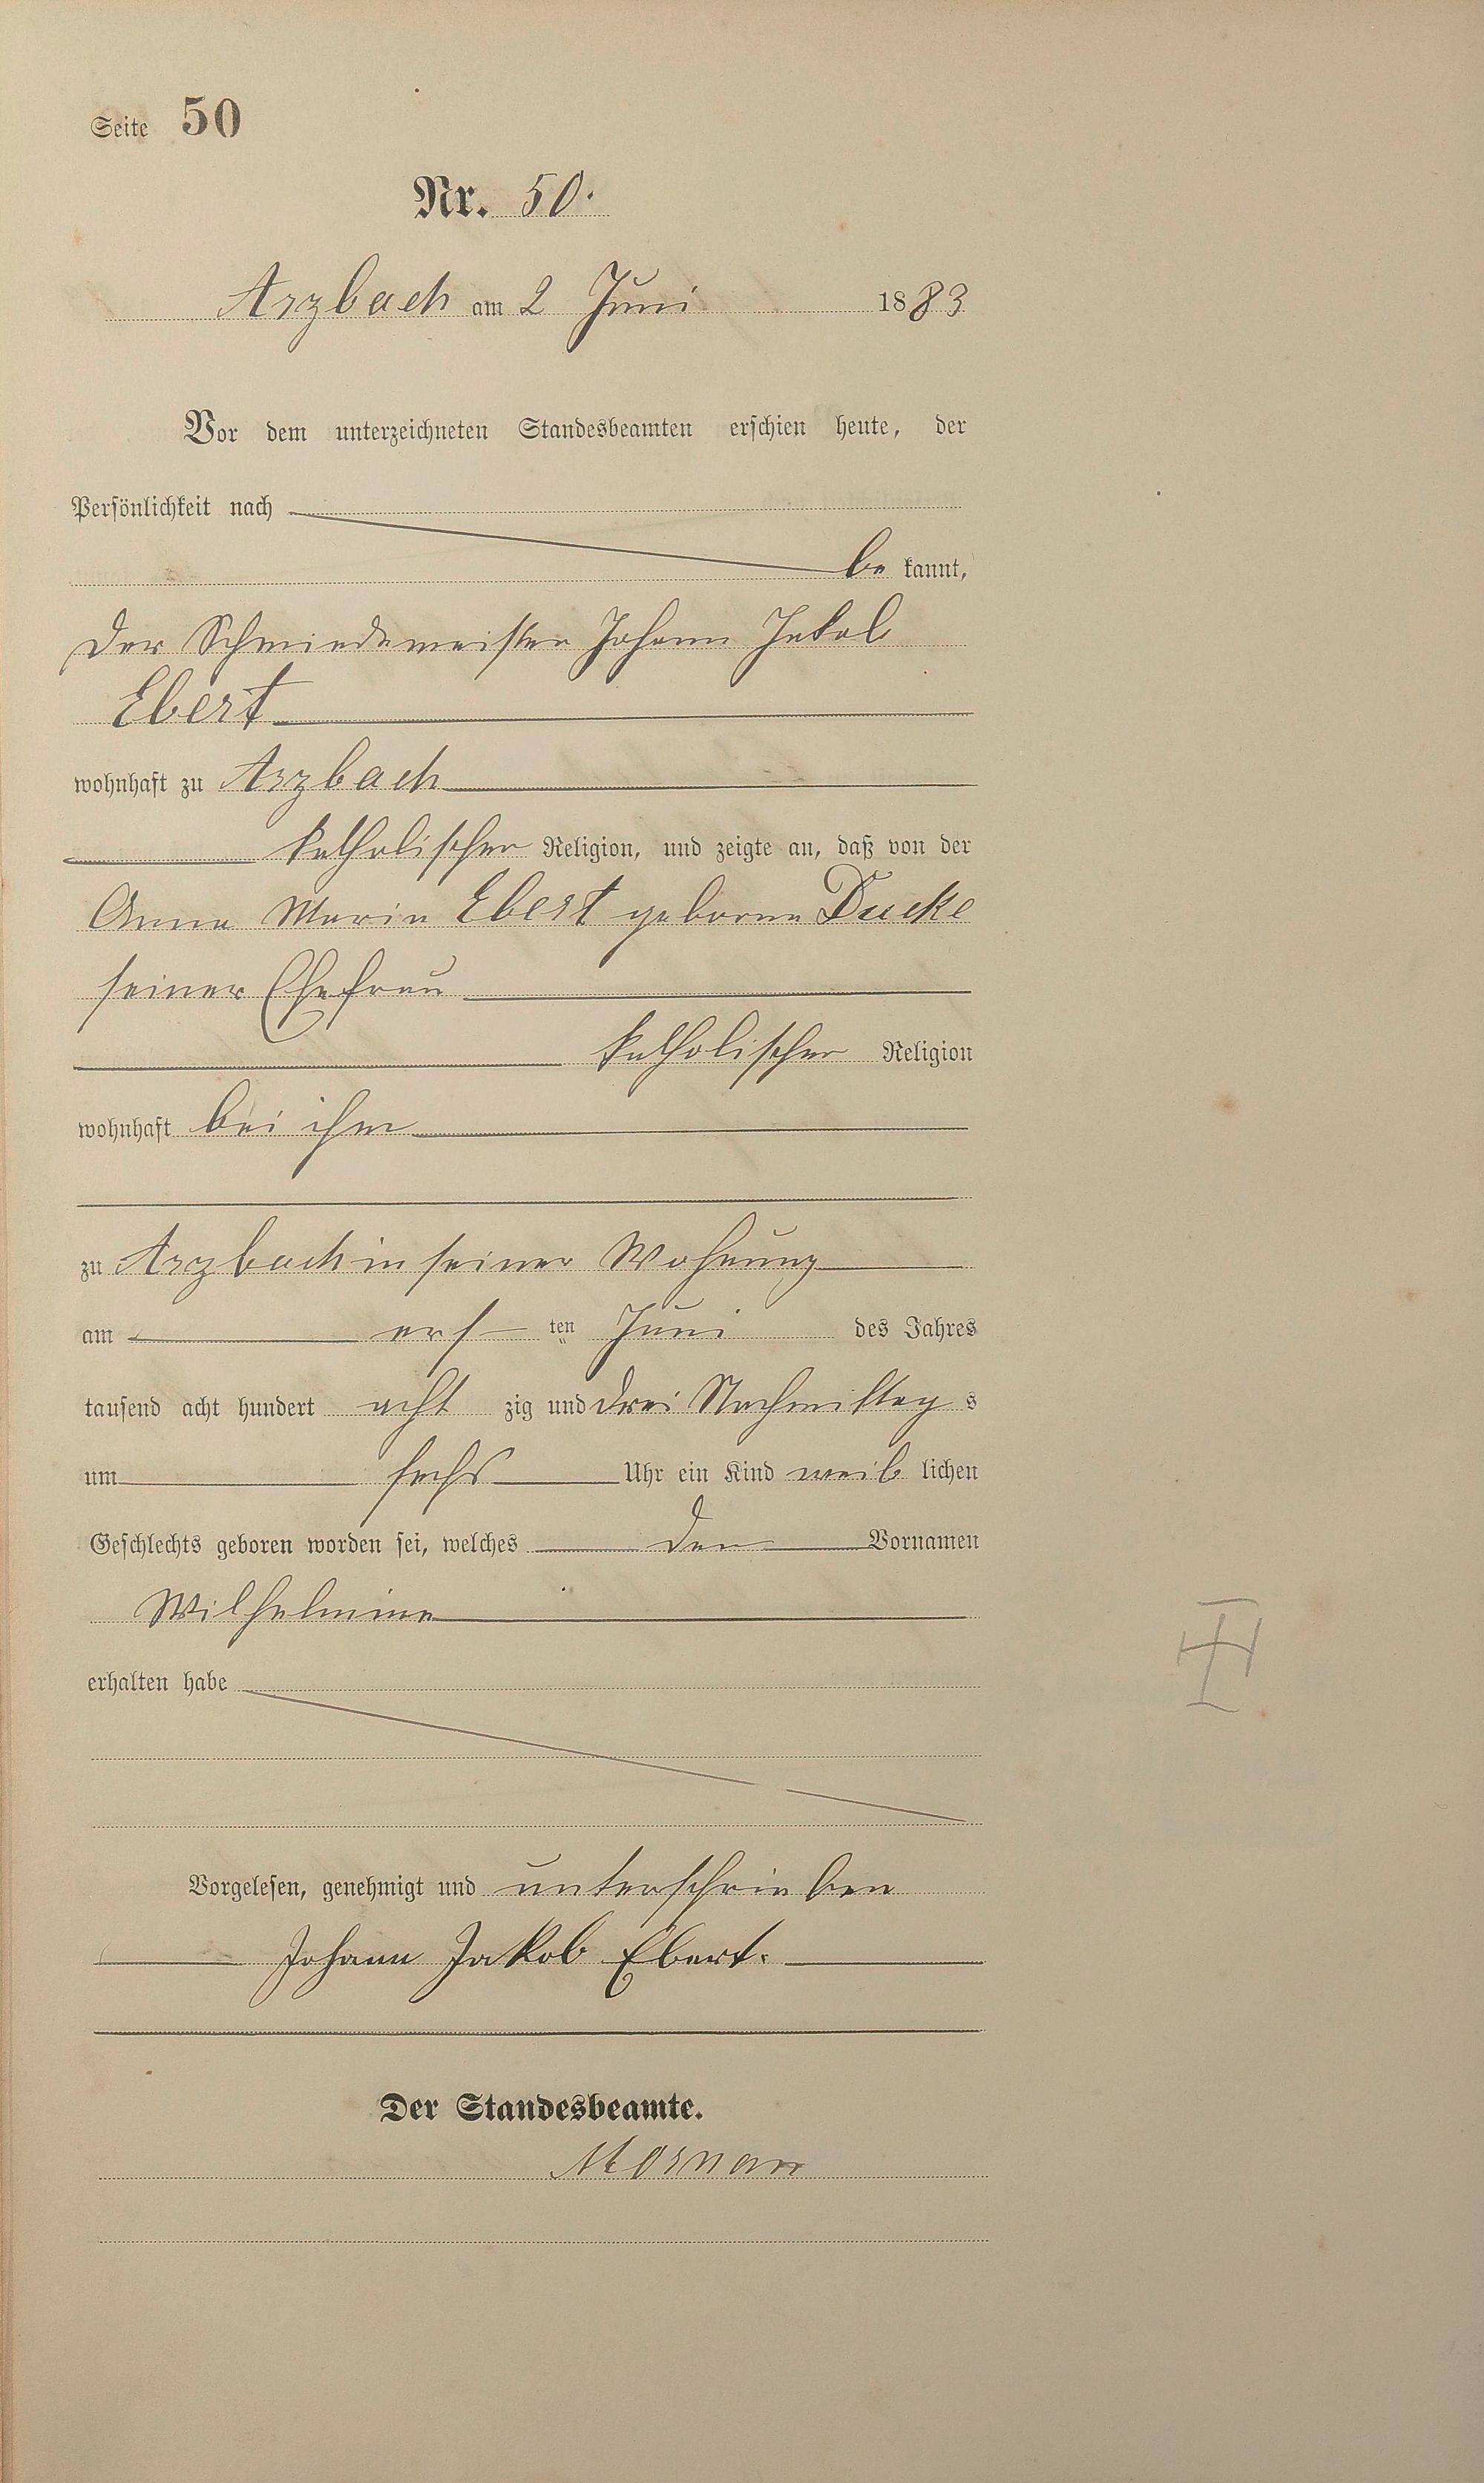 Seite 50
Nr. 50.
Arzbach am 2 Juni 1883
Vor dem unterzeichneten Standesbeamten erschien heute, der
Persönlichkeit nach
be kannt,
der Schmiedemeister Johann Jakob
Ebert
wohnhaft zu Arzbach
katholischer Religion, und zeigte an, daß von der
Anna Maria Ebert geborne Ducke
seiner Ehefrau
katholischer Religion
wohnhaft bei ihm
zu Arzbach in seiner Wohnung
am ers ten Juni des Jahres
tausend acht hundert acht zig und drei Nachmittag s
um sechs Uhr ein Kind weib lichen
Geschlechts geboren worden sei, welches den Vornamen
Wilhelmine
erhalten habe
Vorgelesen, genehmigt und unterschrieben
Johann Jakob Ebert.
Der Standesbeamte.